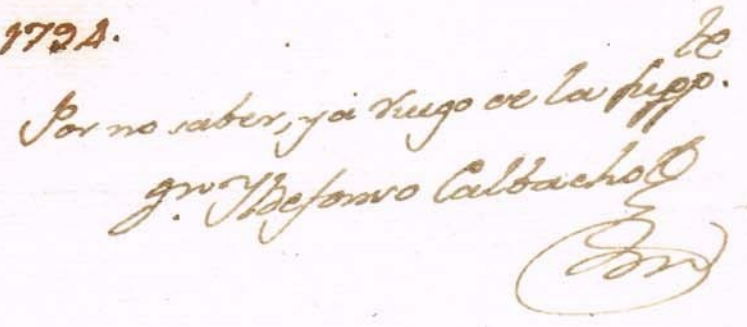 1794.
Por no saber, y à ruego de la supp.te
Gn. Yldefonso Calbacho